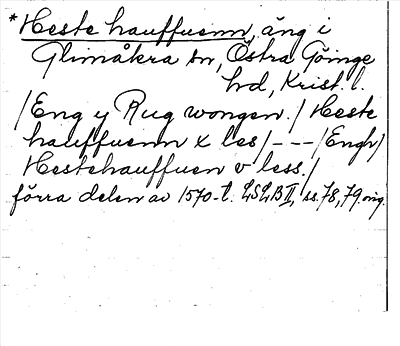 *Heste hauffuenn, äng i
Glimåkra sn, Östra Göinge
hd, Krist. l.
/Eng y Rug wongen./ Heste
hauffuenn x les/---/Engh/
Hestehauffuen v less./
förra delen av 1570-t. LSLB II, ss. 78, 79. orig.